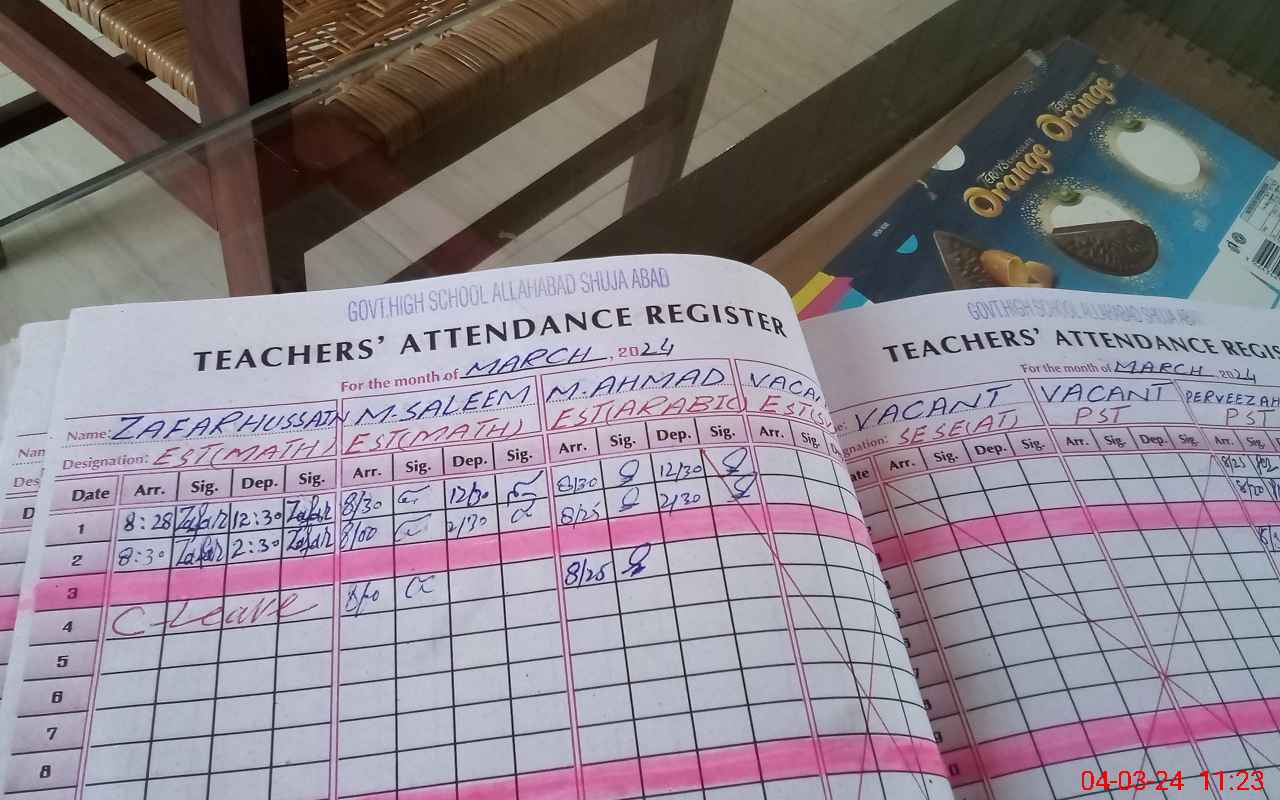 TERRY'S CHOCOLATE Orange
TERRY'S CHOCOLATE Orange
GOVT.HIGH SCHOOL ALLAHABAD SHUJA ABAD
TEACHERS' ATTENDANCE REGISTER
For the month of MARCH, 2024
Name: ZAFAR HUSSAIN M.SALEEM M.AHMAD VACA
Designation: EST(MATH) EST(MATH) EST(ARABIC) EST(S
Date Arr. Sig. Dep. Sig. Arr. Sig. Dep. Sig. Arr. Sig. Dep. Sig. Arr. Sig. De
1 8:28 Zafar 12:30 Zafar 8/30 12/30 8/30 12/30
2 8:30 Zafar 2:30 Zafar 8/00 2/30 8/25 2/30
3
4 C-Leave 8/25
5
6
7
8
GOVT.HIGH SCHOOL ALLAHABAD SHUJA ABA
TEACHERS' ATTENDANCE REGIS
For the month of MARCH, 2024
e: VACANT VACANT PERVEEZ AH
gnation: SESE(AT) PST PST
ate Arr. Sig. Dep. Sig. Arr. Sig. Dep. Sig. Arr. Sig.
8/25
8/20
Nam
Des
D
04-03-24 11:23